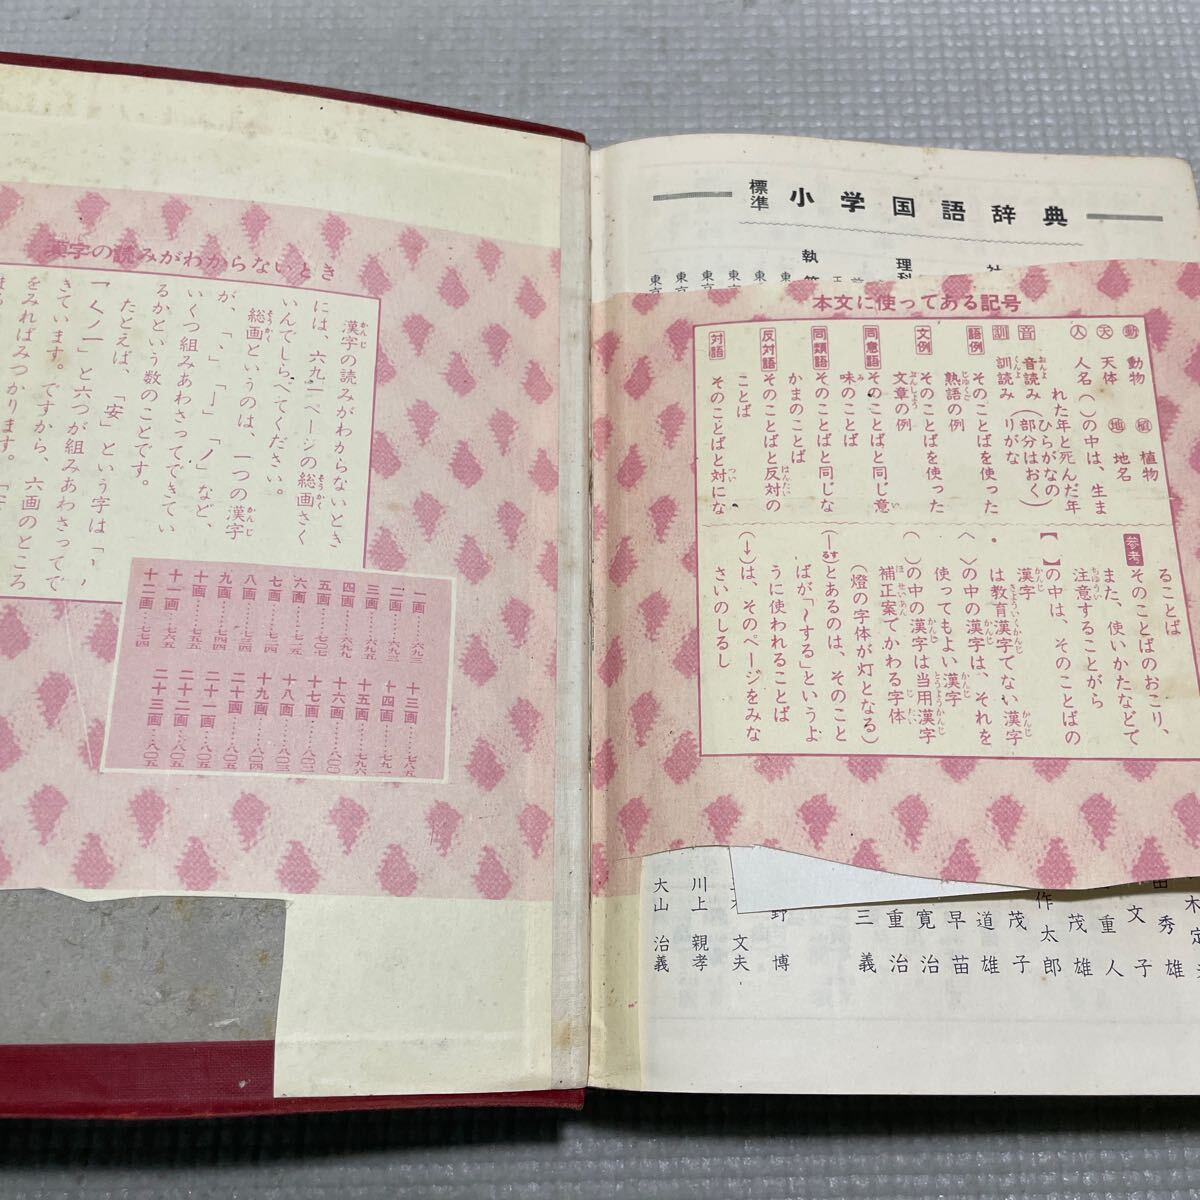 漢字の読みがわからないとき
漢字の読みがわからないとき
には、六九二ページの総画さく
いんでしらべてください。
総画というのは、一つの漢字
が、「、」「一」「ノ」など、
いくつ組みあわさってできてい
るかという数のことです。
たとえば、「安」という字は「、丶
きています。ですから、六画のところ
をみればみつかります。
一画……六九三
二画……六九三
三画……六九五
四画……六九九
五画……七〇七
六画……七一五
八画……七三四
九画……七四四
十画……七五五
十一画……七六五
十二画……七七四
十三画……七八五
十四画……七九一
十五画……七九六
十六画……八〇〇
十七画……八〇二
十八画……八〇三
十九画……八〇四
二十画……八〇五
二十一画……八〇五
二十二画……八〇五
二十三画……八〇五
標準 小学国語辞典
執筆
理科
本文に使ってある記号
動 動物 植 植物
天 天体 地 地名
人 人名( )の中は、生ま
れた年と死んだ年
音 音読み(ひらがなの
訓 訓読み(部分はおく
りがな
語例 そのことばを使った
熟語の例
文例 そのことばを使った
文章の例
同意語 そのことばと同じ意
味のことば
同類語 そのことばと同じな
かまのことば
反対語 そのことばと反対の
ことば
対語 そのことばと対にな
ることば
参考 そのことばのおこり、
また、使いかたなどで
注意することがら
【 】の中は、そのことばの
漢字
・は教育漢字でない漢字
〈 〉の中の漢字は、それを
使ってもよい漢字
( )の中の漢字は当用漢字
補正案でかわる字体
(燈の字体が灯となる)
(―する)とあるのは、そのこと
ばが「〜する」というよ
うに使われることば
(→)は、そのページをみな
さいのしるし
秀雄
文子
重人
茂雄
作太郎
茂子
道雄
早苗
寛治
重治
三義
野博
文夫
川上親孝
大山治義